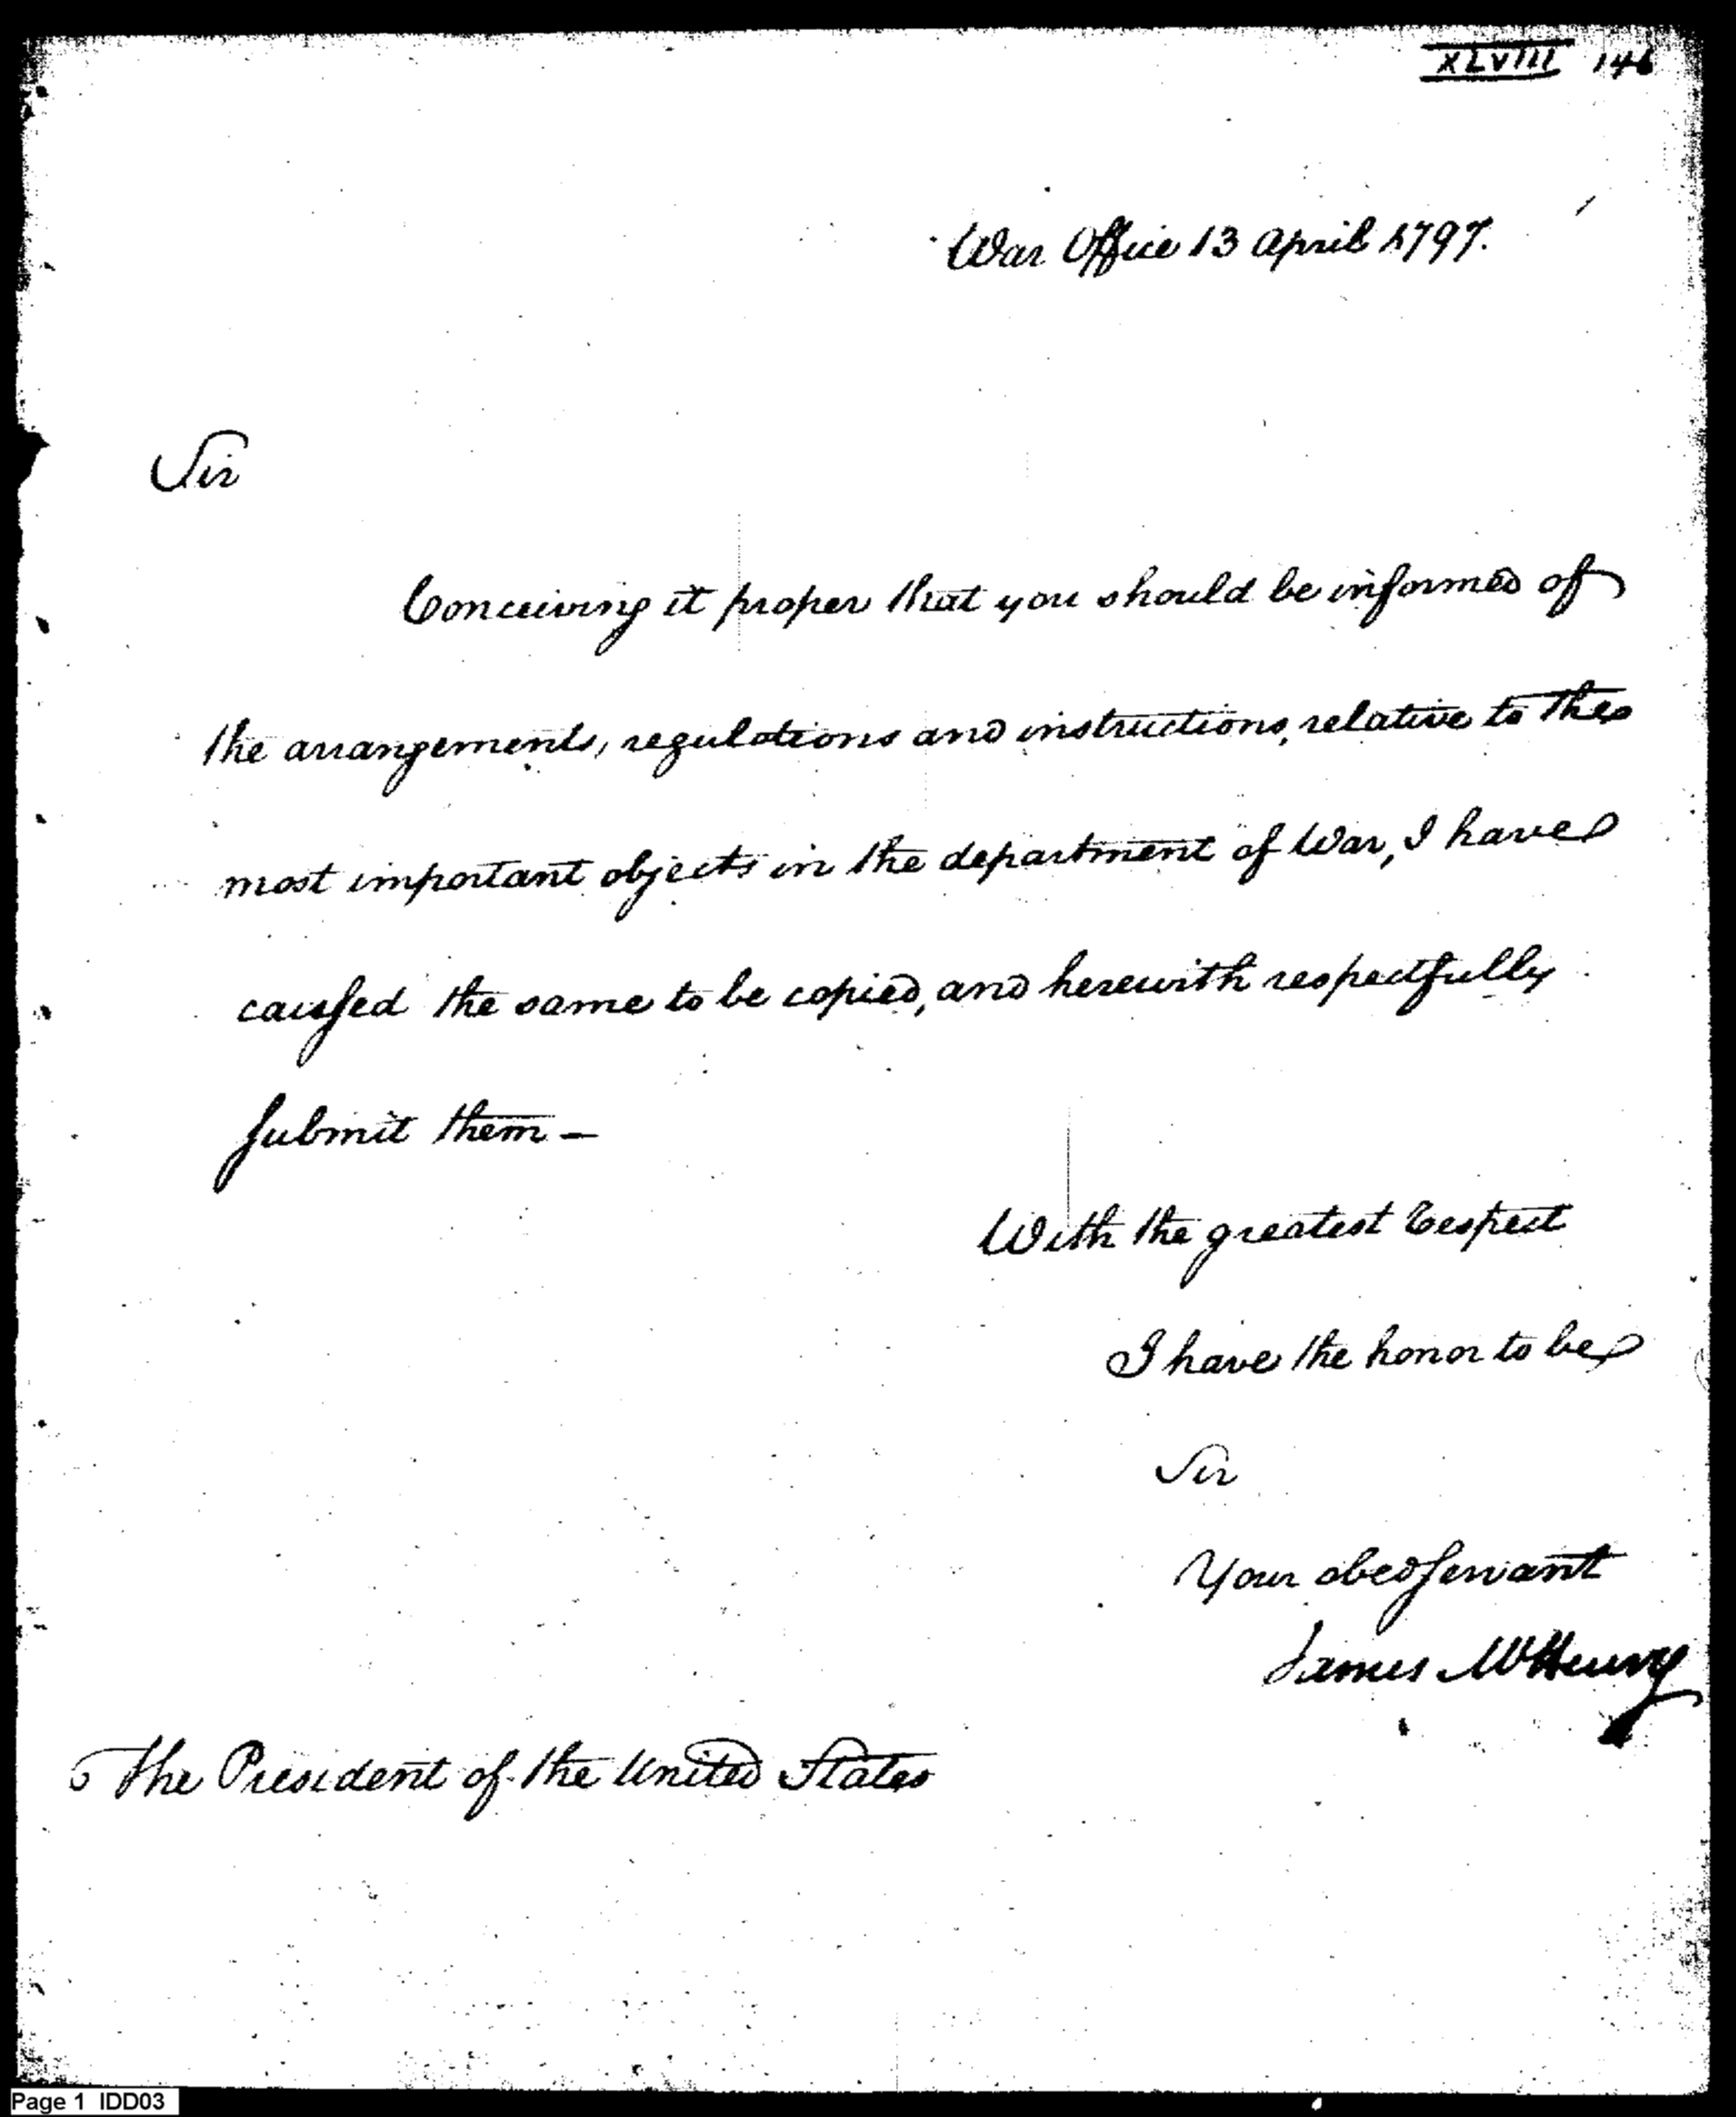 XLVIII 146
War Office 13 April 1797.
Sir
Conceiving it proper that you should be informed of
the arrangements, regulations and instructions, relative to the
most important objects in the department of War, I have
caused the same to be copied, and herewith respectfully
submit them —
With the greatest respect
I have the honor to be
Sir
Your obed servant
James McHenry
The President of the United States
Page 1 IDD03